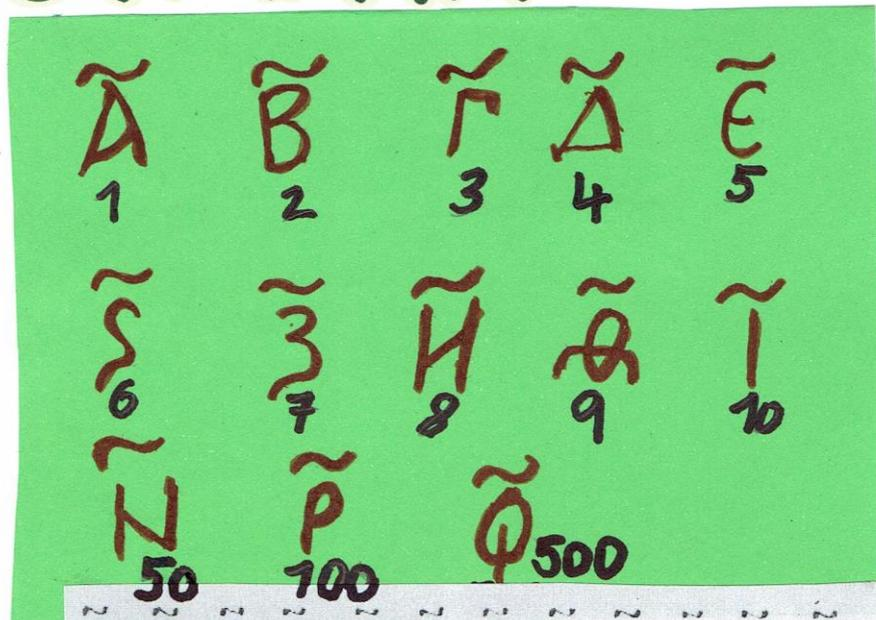 А҃ В҃ Г҃ Д҃ Є҃
1 2 3 4 5
Ѕ҃ З҃ И҃ Ѳ҃ І҃
6 7 8 9 10
N҃ Р҃ Ф҃
50 100 500